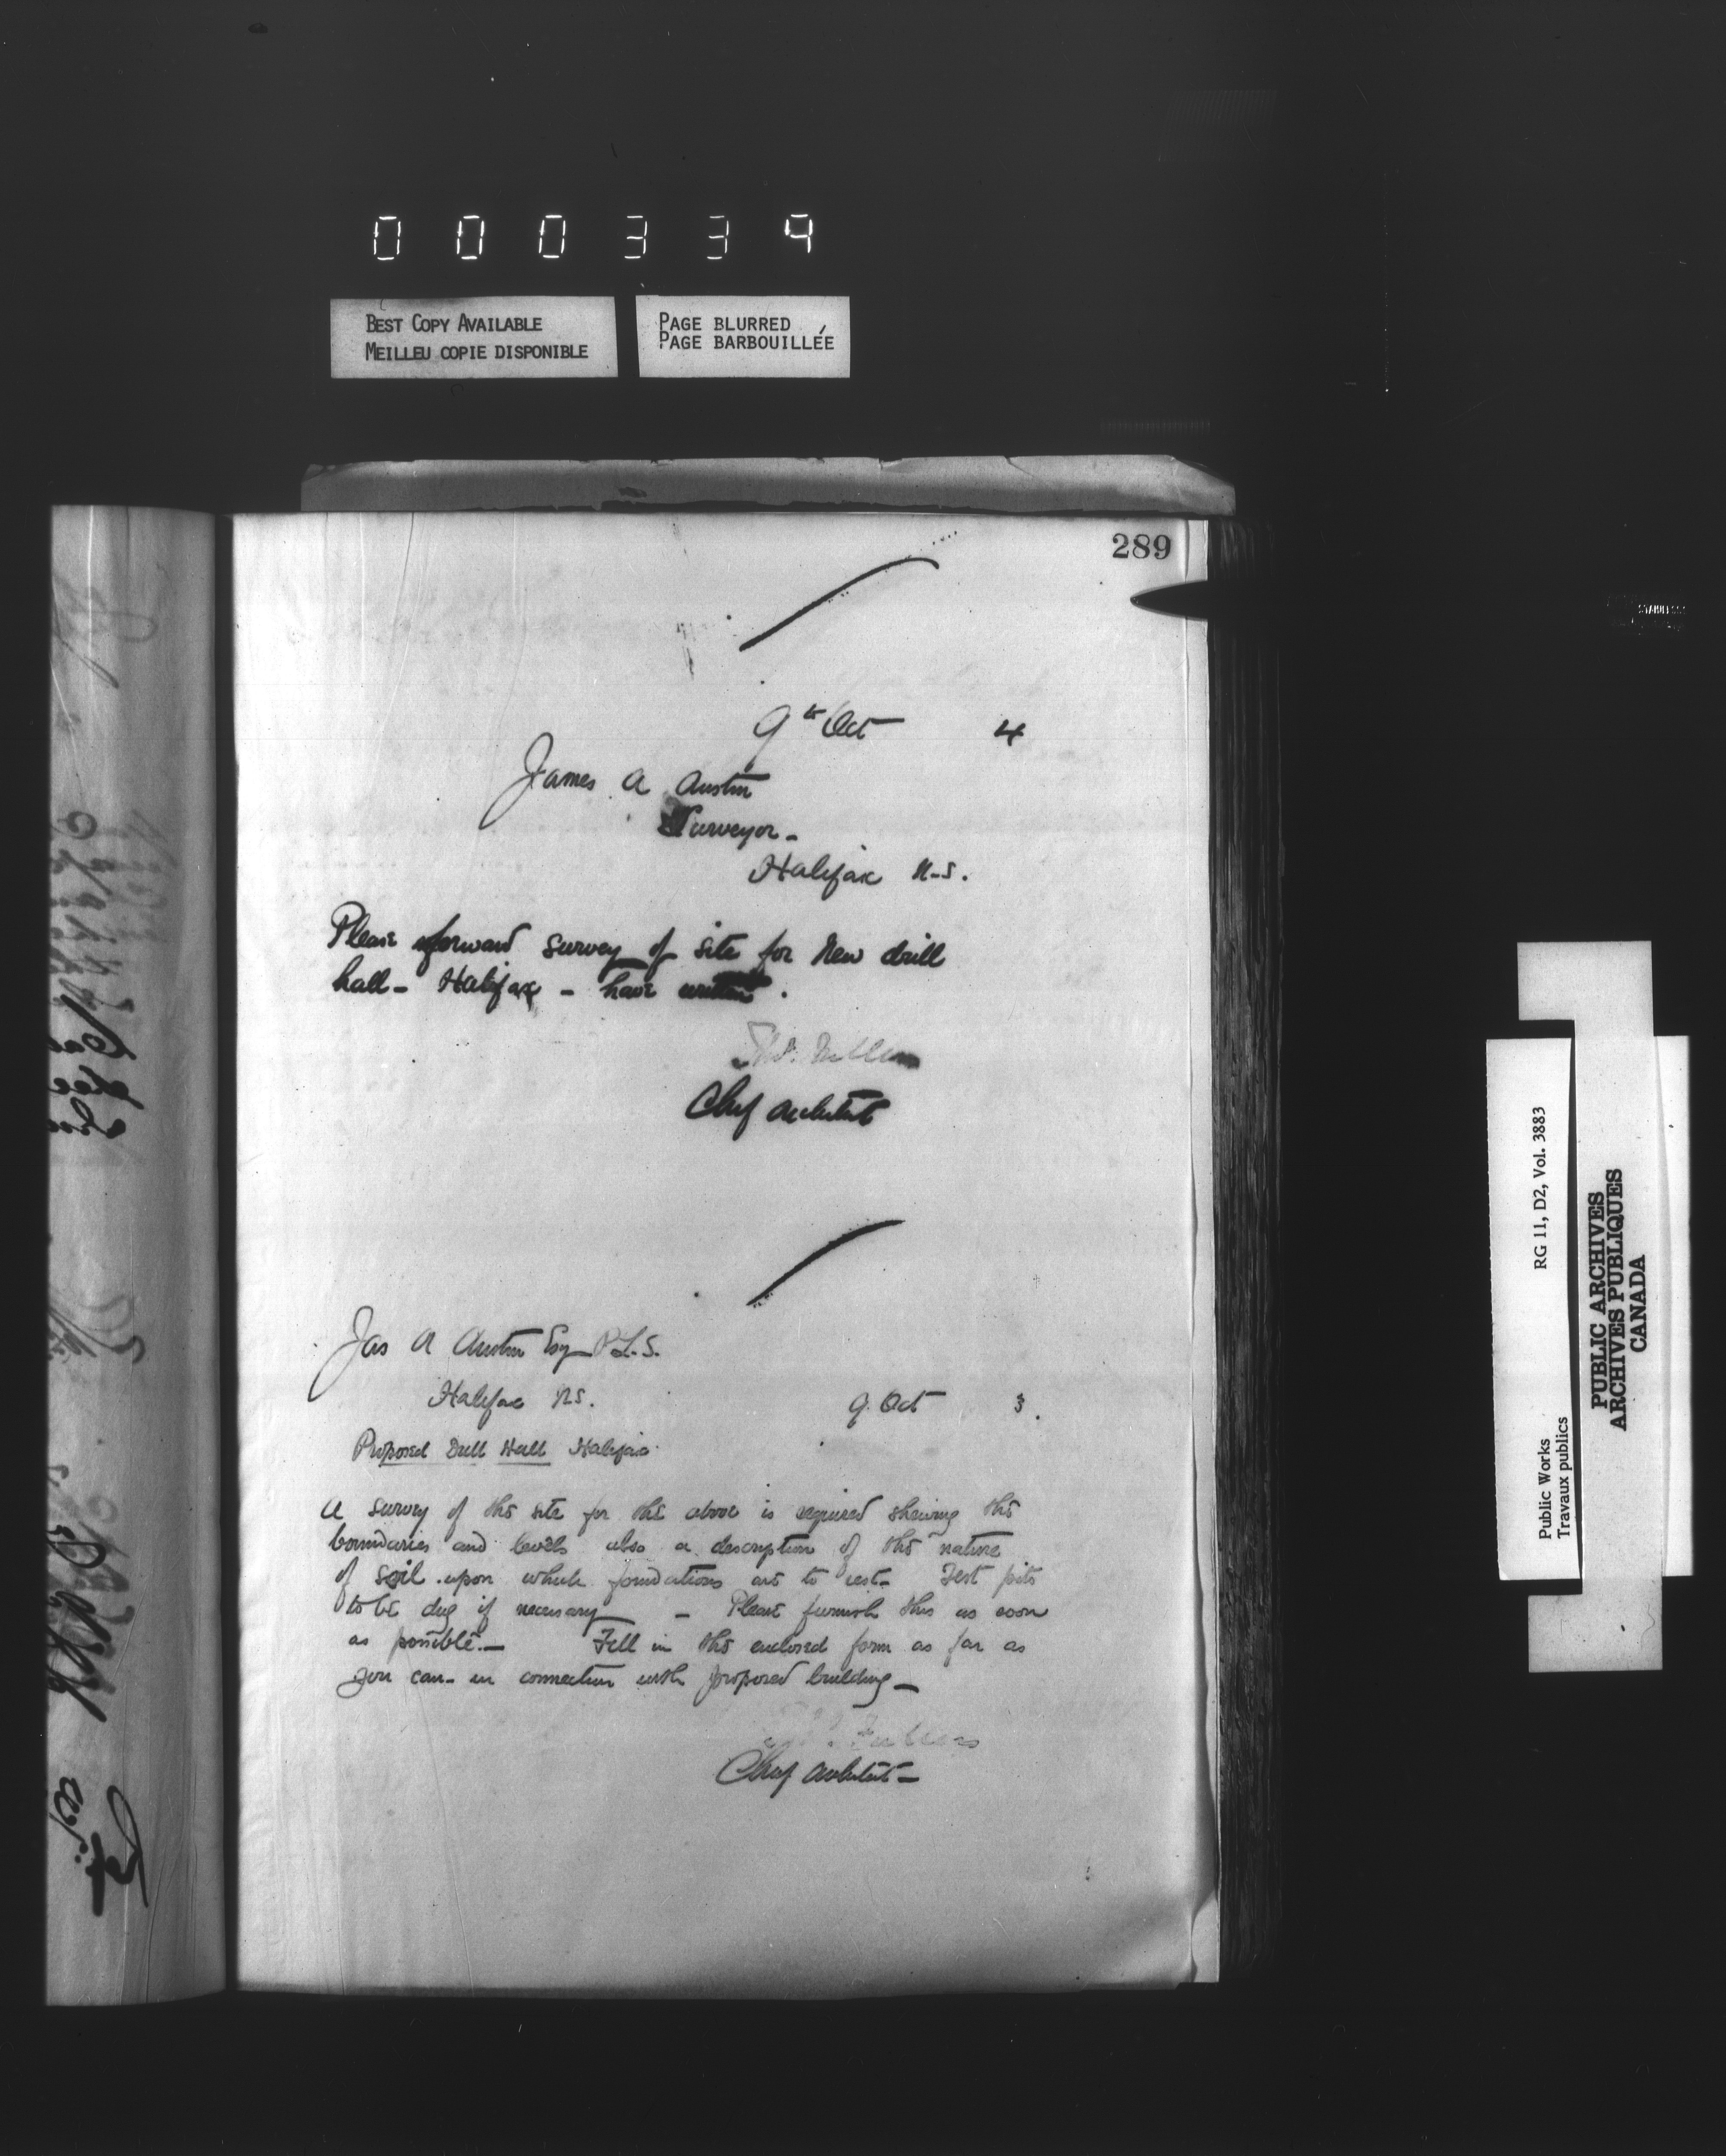 000334
BEST COPY AVAILABLE
MEILLEU COPIE DISPONIBLE
PAGE BLURRED
PAGE BARBOUILLÉE
289
9th Oct 4
James A Austin
Surveyor -
Halifax N.S.
Please forward survey of site for new drill
hall - Halifax - have written.
Thos. Fuller
Chief Architect
Jas A Austin Esq P.L.S.
Halifax NS.
9. Oct 3.
Proposed Drill Hall Halifax
A survey of the site for the above is required shewing the
boundaries and levels also a description of the nature
of soil upon which foundations are to rest - Test pits
to be dug if necessary - Please furnish this as soon
as possible. - Fill in the enclosed form as far as
you can - in connection with proposed building -
Fuller
Chief Architect -
RG 11, D2, Vol. 3883
Public Works
Travaux publics
PUBLIC ARCHIVES
ARCHIVES PUBLIQUES
CANADA